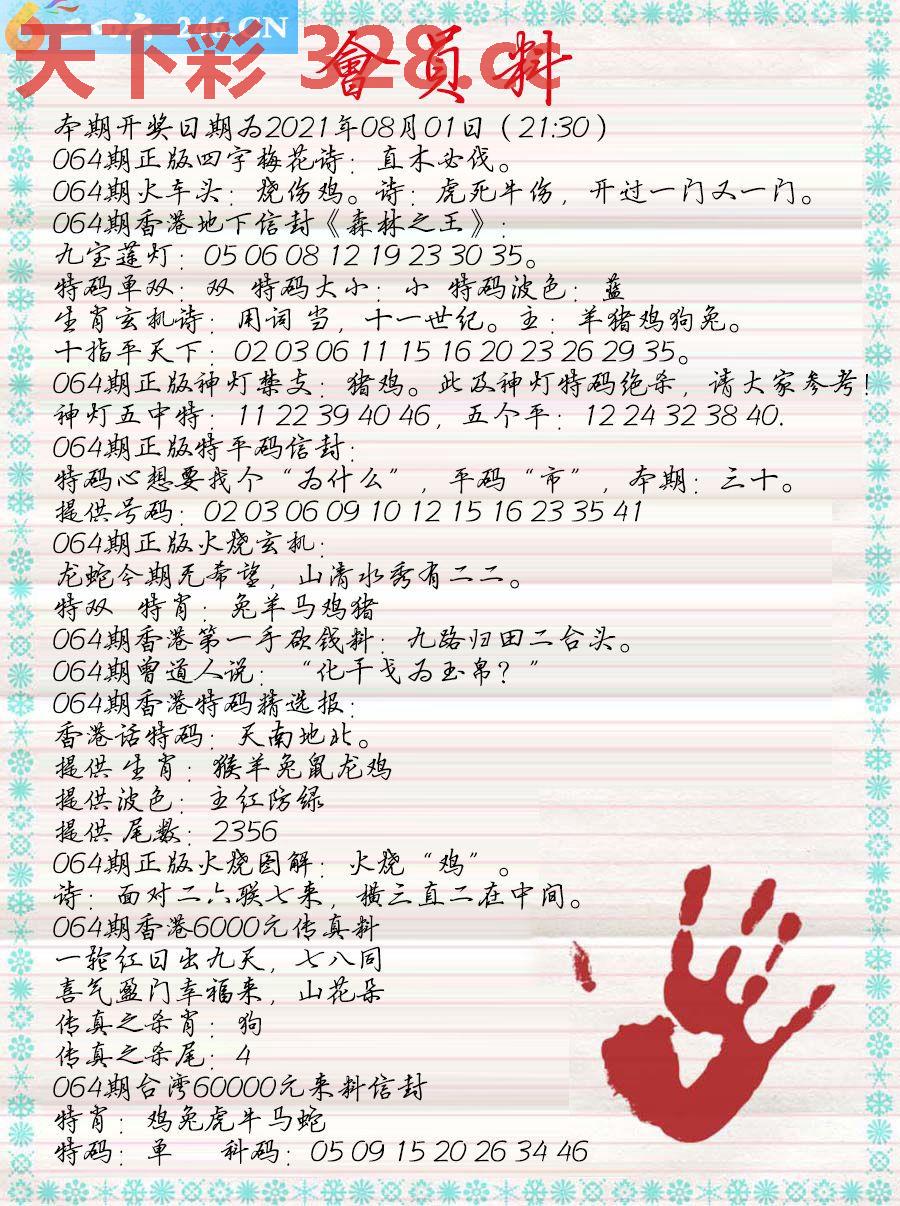 246.CN
天下彩 328.cc
會員料
本期开奖日期为2021年08月01日（21:30）
064期正版四字梅花诗：直木必伐。
064期火车头：烧伤鸡。诗：虎死牛伤，开过一门又一门。
064期香港地下信封《森林之王》：
九宝莲灯：05 06 08 12 19 23 30 35。
特码单双：双 特码大小：小 特码波色：蓝
生肖玄机诗：用词 当，十一世纪。主：羊猪鸡狗兔。
十指平天下：02 03 06 11 15 16 20 23 26 29 35。
064期正版神灯禁支：猪鸡。此及神灯特码绝杀，请大家参考！
神灯五中特：11 22 39 40 46，五个平：12 24 32 38 40.
064期正版特平码信封：
特码心想要找个“为什么”，平码“市”，本期：三十。
提供号码：02 03 06 09 10 12 15 16 23 35 41
064期正版火烧玄机：
龙蛇今期无希望，山清水秀有二二。
特双 特肖：兔羊马鸡猪
064期香港第一手砍钱料：九路归田二台头。
064期曾道人说：“化干戈为玉帛？”
064期香港特码精选报：
香港话特码：天南地北。
提供 生肖：猴羊兔鼠龙鸡
提供波色：主红防绿
提供 尾数：2356
064期正版火烧图解：火烧“鸡”。
诗：面对二六联七来，横三直二在中间。
064期香港6000元传真料
一轮红日出九天，七八同
喜气盈门幸福来，山花朵
传真之杀肖：狗
传真之杀尾：4
064期台湾60000元来料信封
特肖：鸡兔虎牛马蛇
特码：单 科码：05 09 15 20 26 34 46